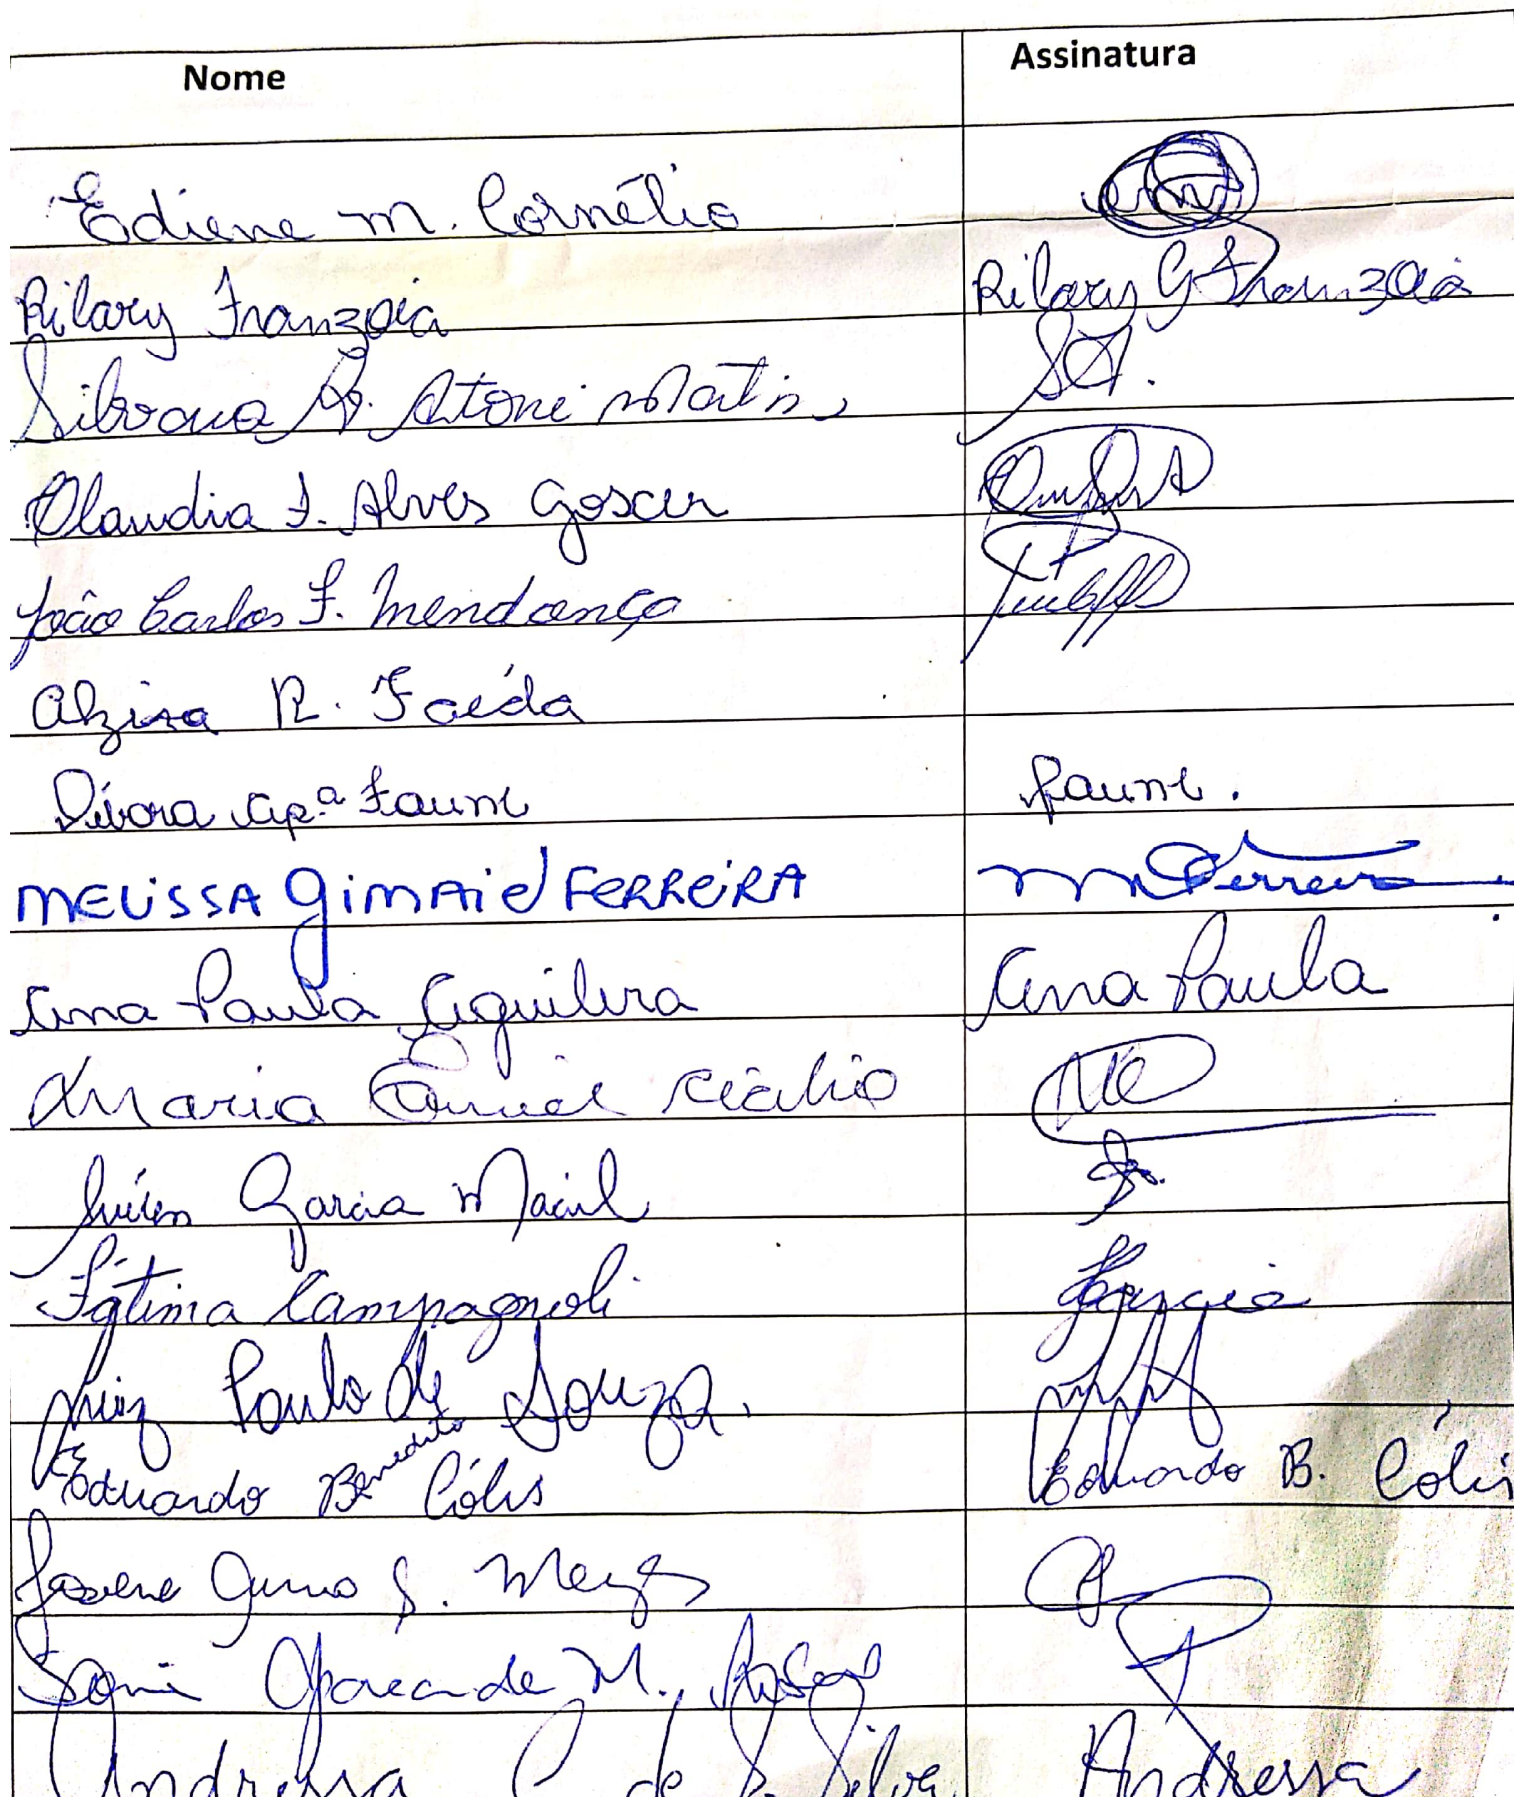 Nome Assinatura
Ediene M. Cornélio
Rilary Franzoia Rilary G Franzoia
Silvana Ap. Atoni Martins S.A.
Claudia F. Alves Goscer
João Carlos F. Mendonça
Alzira R. Faéda
Débora Apª Faune Faune.
MELiSSA GiMAiel FERREiRA M Ferreira
Ana Paula Aguilera Ana Paula
Maria Cecilio
Garcia Maciel
Fátima Campagnoli
Luiz Paulo de Souza.
Eduardo Benedito Cólis Eduardo B. Cólis
S.
Sonia Aparecida M.
Andressa C. de S. Silva Andressa